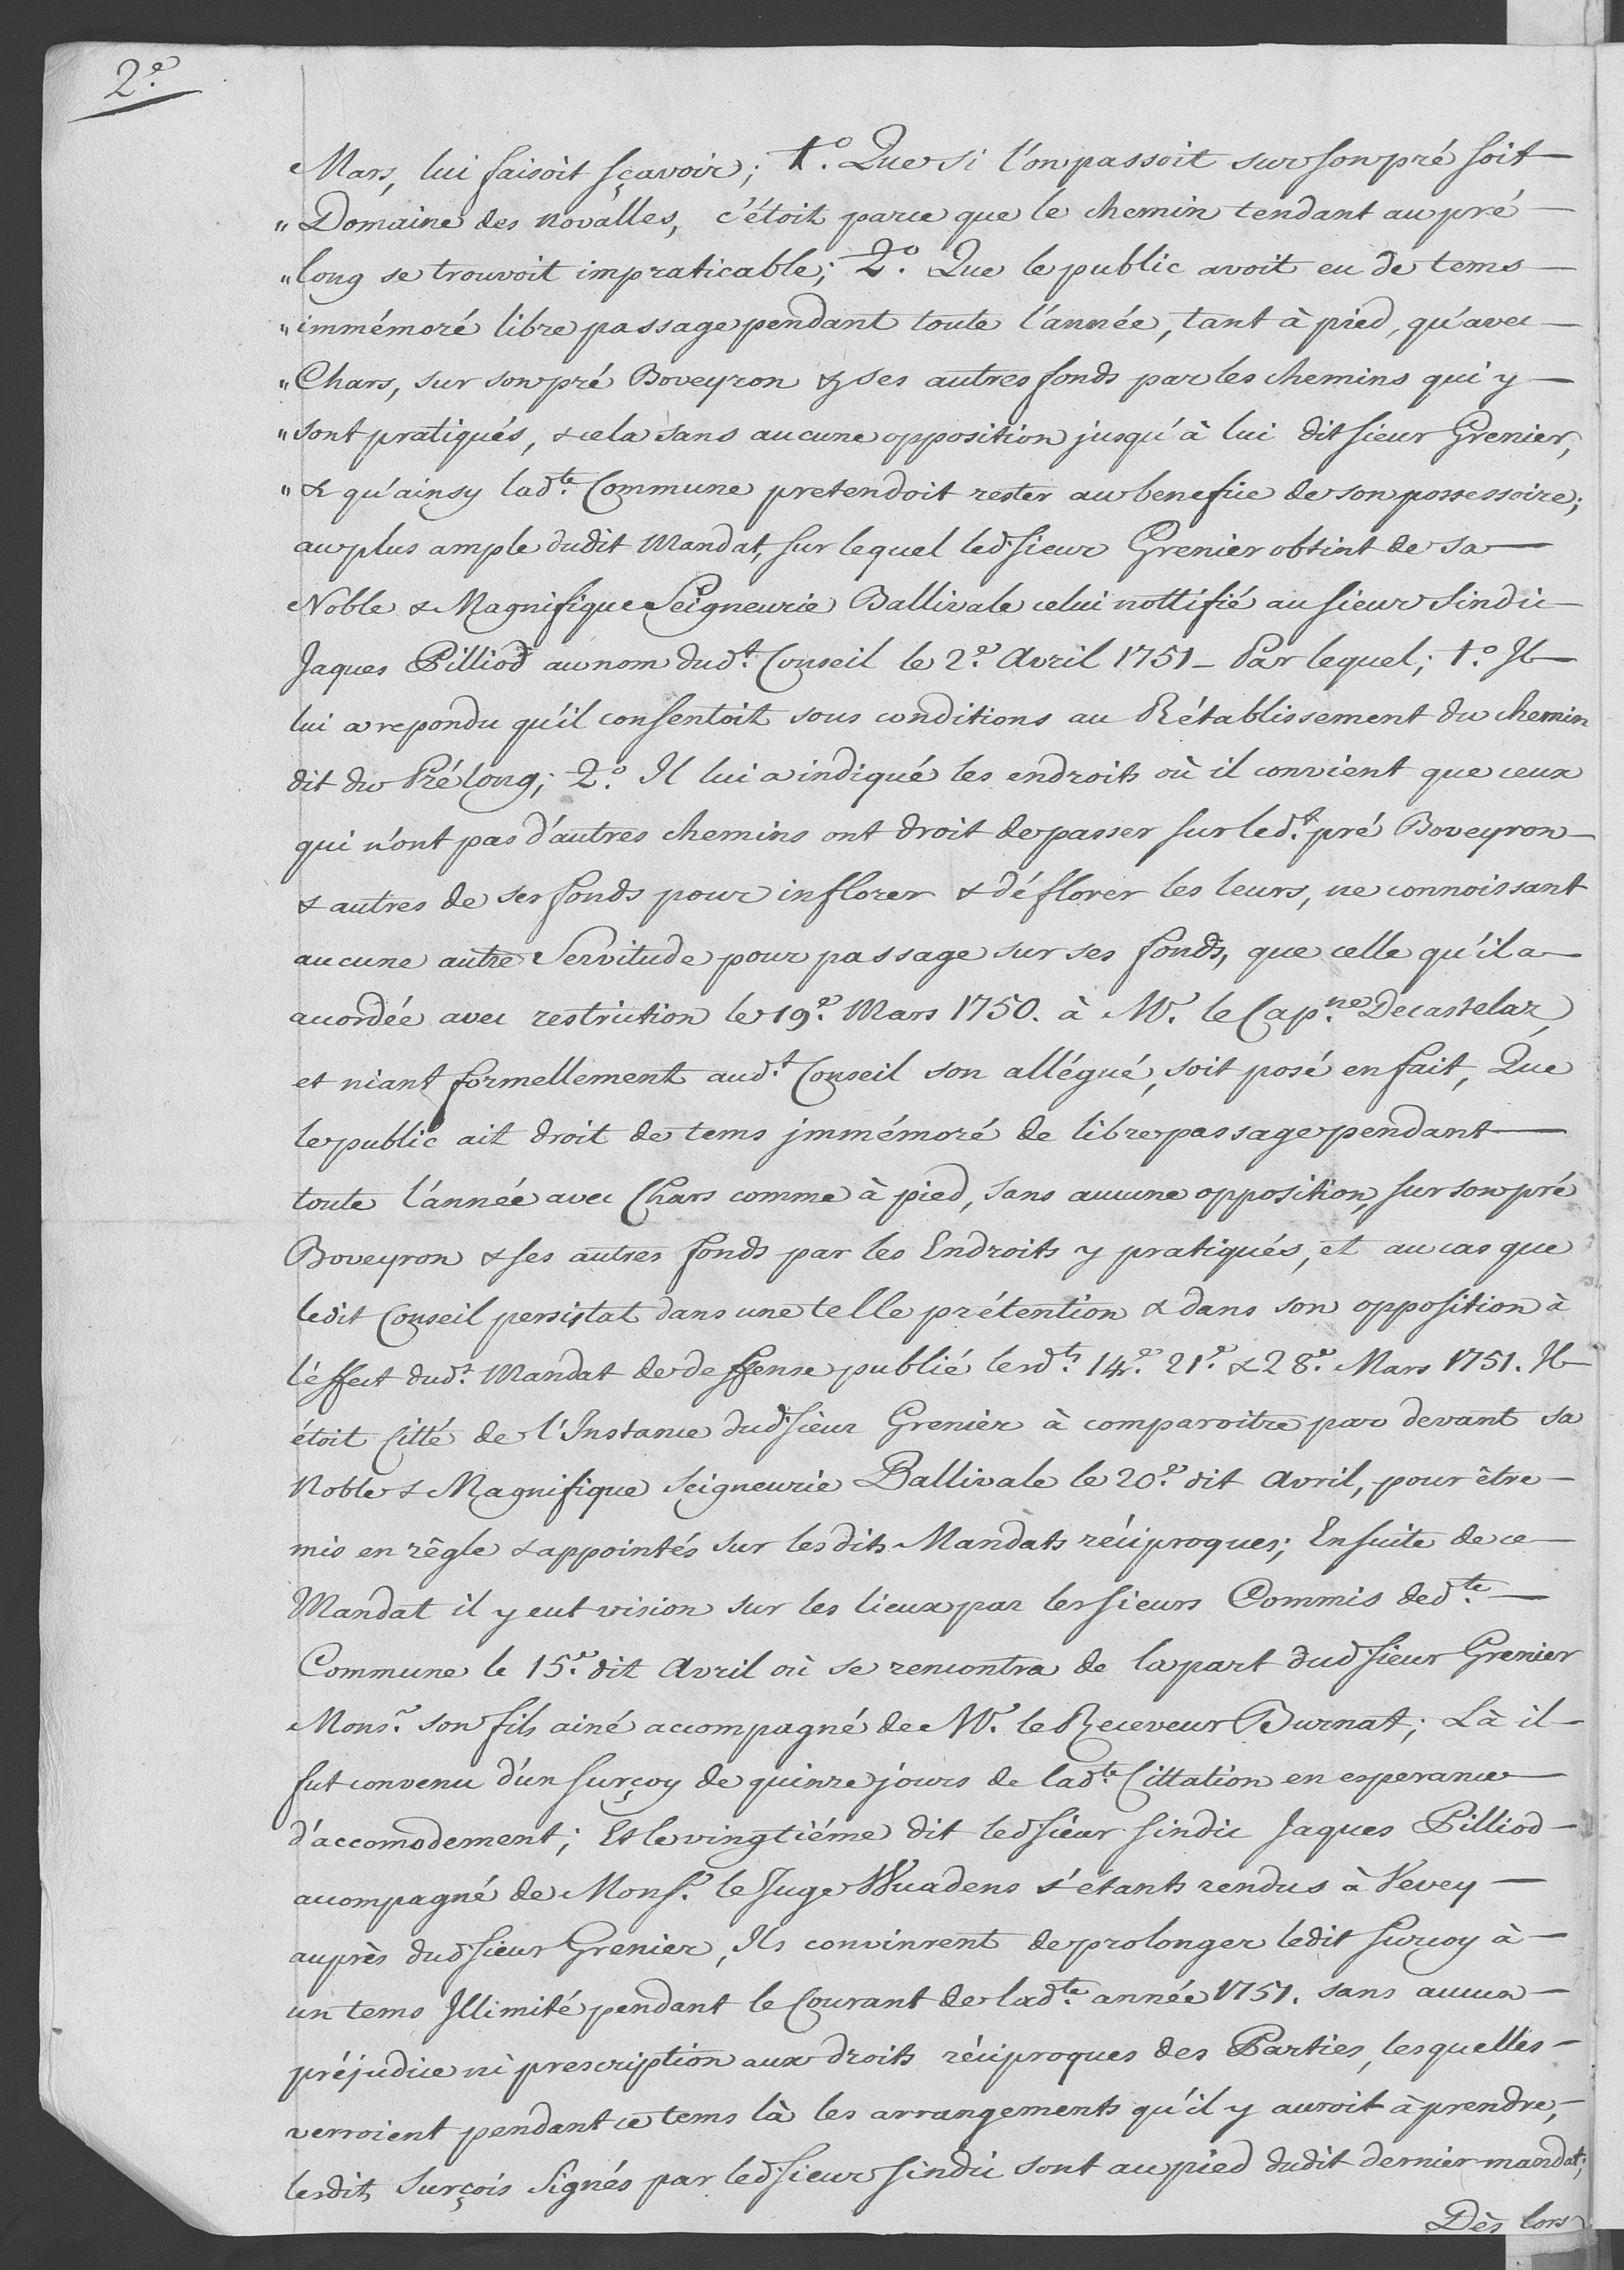 2.e
Mars, lui faisoit sçavoir; 1.o Que si l'on passoit sur son pré soit
" Domaine des novâlles, c'étoit parce que le chemin tendant au pré
" long se trouvoit impraticable; 2.o Que le public avoit eu de tems
" immémoré libre passage pendant toute l'année, tant à pied, qu'avec
" Chars, sur son pré Boveyron & ses autres fonds par les chemins qui y
" sont pratiqués, & cela sans aucune opposition jusqu'à lui dit sieur Grenier,
" & qu'ainsy lad.te Commune pretendoit rester au benefice de son possessoire;
au plus ample dudit Mandat, sur lequel led. sieur Grenier obtint de sa
Noble & Magnifique Seigneurie Ballivale celui nottifié au sieur Sindic
Jaques Pilliod au nom dud.t Conseil le 2.e Avril 1751 - Par lequel; 1.o Il
lui a repondu qu'il consentoit sous conditions au Rétablissement du chemin
dit du Pré long; 2.o Il lui a indiqué les endroits où il convient que ceux
qui n'ont pas d'autres chemins ont droit de passer sur led.t pré Boveyron
& autres de ses fonds pour inflorer & déflorer les leurs, ne connoissant
aucune autre Servitude pour passage sur ses fonds, que celle qu'il a
accordée avec restriction le 19.e Mars 1750. à Mr. le Cap.ne Decastelaz,
et niant formellement aud.t Conseil son allégué, soit posé en fait, Que
le public ait droit de tems jmmémoré de libre passage pendant
toute l'année avec Chars comme à pied, sans aucune opposition, sur son pré
Boveyron & ses autres fonds par les Endroits y pratiqués, et au cas que
ledit Conseil persistat dans une telle prétention & dans son opposition à
l'éffect dud.t Mandat de deffense publié lesd.ts 14.e 21.e & 28.e Mars 1751. Il
étoit Citté de l'Instance dud. sieur Grenier à comparoitre par devant sa
Noble & Magnifique Seigneurie Ballivale le 20.e dit Avril, pour être
mis en règle & appointés sur lesdits Mandats réciproques; Ensuite de ce
Mandat il y eut vision sur les lieux par les sieurs Commis ded.te
Commune le 15.e dit Avril où se rencontra de la part dud. sieur Grenier
Mons.r son fils ainé accompagné de Mr. le Receveur Burnat; Là il
fut convenu d'un surçoy de quinze jours de lad.te Cittation en esperance
d'accomodement; Et le vingtiéme dit led. sieur sindic Jaques Pilliod
accompagné de Mons.r le Juge Wuadens s'étants rendus à Vevey
auprès dud. sieur Grenier, Ils convinrent de prolonger ledit surcoy à
un tems Jllimité pendant le Courant de lad.te année 1751. sans aucun
préjudice ni prescription aux droits réciproques des Parties, lesquelles
verroient pendant ce tems là les arrangements qu'il y auroit à prendre,
lesdits surçois Signés par led. sieur sindic sont au pied dudit dernier mandat;
Dès lors